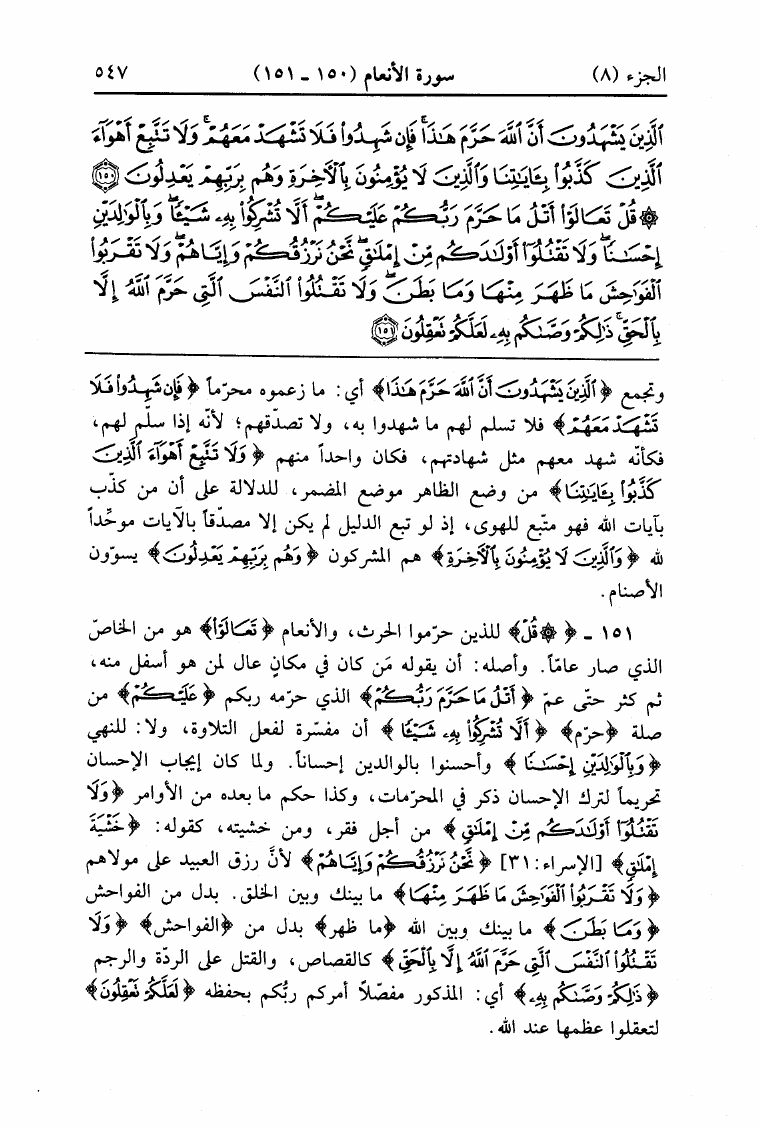 الجزء (٨) سورة الأنعام (١٥٠ ـ ١٥١) ٥٤٧
ٱلَّذِينَ يَشْهَدُونَ أَنَّ ٱللَّهَ حَرَّمَ هَٰذَا ۖ فَإِن شَهِدُوا۟ فَلَا تَشْهَدْ مَعَهُمْ ۚ وَلَا تَتَّبِعْ أَهْوَآءَ
ٱلَّذِينَ كَذَّبُوا۟ بِـَٔايَٰتِنَا وَٱلَّذِينَ لَا يُؤْمِنُونَ بِٱلْـَٔاخِرَةِ وَهُم بِرَبِّهِمْ يَعْدِلُونَ ﴿١٥٠﴾
۞ قُلْ تَعَالَوْا۟ أَتْلُ مَا حَرَّمَ رَبُّكُمْ عَلَيْكُمْ ۖ أَلَّا تُشْرِكُوا۟ بِهِۦ شَيْـًٔا ۖ وَبِٱلْوَٰلِدَيْنِ
إِحْسَٰنًا ۖ وَلَا تَقْتُلُوٓا۟ أَوْلَٰدَكُم مِّنْ إِمْلَٰقٍ ۖ نَّحْنُ نَرْزُقُكُمْ وَإِيَّاهُمْ ۖ وَلَا تَقْرَبُوا۟
ٱلْفَوَٰحِشَ مَا ظَهَرَ مِنْهَا وَمَا بَطَنَ ۖ وَلَا تَقْتُلُوا۟ ٱلنَّفْسَ ٱلَّتِى حَرَّمَ ٱللَّهُ إِلَّا
بِٱلْحَقِّ ۚ ذَٰلِكُمْ وَصَّىٰكُم بِهِۦ لَعَلَّكُمْ تَعْقِلُونَ ﴿١٥١﴾
وتجمع ﴿ٱلَّذِينَ يَشْهَدُونَ أَنَّ ٱللَّهَ حَرَّمَ هَٰذَا﴾ أي: ما زعموه محرّماً ﴿فَإِن شَهِدُوا۟ فَلَا
تَشْهَدْ مَعَهُمْ﴾ فلا تسلم لهم ما شهدوا به، ولا تصدّقهم؛ لأنّه إذا سلّم لهم،
فكأنّه شهد معهم مثل شهادتهم، فكان واحداً منهم ﴿وَلَا تَتَّبِعْ أَهْوَآءَ ٱلَّذِينَ
كَذَّبُوا۟ بِـَٔايَٰتِنَا﴾ من وضع الظاهر موضع المضمر، للدلالة على أن من كذّب
بآيات الله فهو متّبع للهوى، إذ لو تبع الدليل لم يكن إلا مصدّقاً بالآيات موحِّداً
لله ﴿وَٱلَّذِينَ لَا يُؤْمِنُونَ بِٱلْـَٔاخِرَةِ﴾ هم المشركون ﴿وَهُم بِرَبِّهِمْ يَعْدِلُونَ﴾ يسوّون
الأصنام.
١٥١ ـ ﴿۞ قُلْ﴾ للذين حرّموا الحرث، والأنعام ﴿تَعَالَوْا۟﴾ هو من الخاصّ
الذي صار عامّاً. وأصله: أن يقوله مَن كان في مكانٍ عال لمن هو أسفل منه،
ثم كثر حتّى عمّ ﴿أَتْلُ مَا حَرَّمَ رَبُّكُمْ﴾ الذي حرّمه ربكم ﴿عَلَيْكُمْ﴾ من
صلة ﴿حرّم﴾ ﴿أَلَّا تُشْرِكُوا۟ بِهِۦ شَيْـًٔا﴾ أن مفسّرة لفعل التلاوة، ولا: للنهي
﴿وَبِٱلْوَٰلِدَيْنِ إِحْسَٰنًا﴾ وأحسنوا بالوالدين إحساناً. ولما كان إيجاب الإحسان
تحريماً لترك الإحسان ذكر في المحرّمات، وكذا حكم ما بعده من الأوامر ﴿وَلَا
تَقْتُلُوٓا۟ أَوْلَٰدَكُم مِّنْ إِمْلَٰقٍ﴾ من أجل فقر، ومن خشيته، كقوله: ﴿خَشْيَةَ
إِمْلَٰقٍ﴾ [الإسراء: ٣١] ﴿نَّحْنُ نَرْزُقُكُمْ وَإِيَّاهُمْ﴾ لأنَّ رزق العبيد على مولاهم
﴿وَلَا تَقْرَبُوا۟ ٱلْفَوَٰحِشَ مَا ظَهَرَ مِنْهَا﴾ ما بينك وبين الخلق. بدل من الفواحش
﴿وَمَا بَطَنَ﴾ ما بينك وبين الله ﴿ما ظهر﴾ بدل من ﴿الفواحش﴾ ﴿وَلَا
تَقْتُلُوا۟ ٱلنَّفْسَ ٱلَّتِى حَرَّمَ ٱللَّهُ إِلَّا بِٱلْحَقِّ﴾ كالقصاص، والقتل على الردّة والرجم
﴿ذَٰلِكُمْ وَصَّىٰكُم بِهِۦ﴾ أي: المذكور مفصّلاً أمركم ربُّكم بحفظه ﴿لَعَلَّكُمْ تَعْقِلُونَ﴾
لتعقلوا عظمها عند الله.